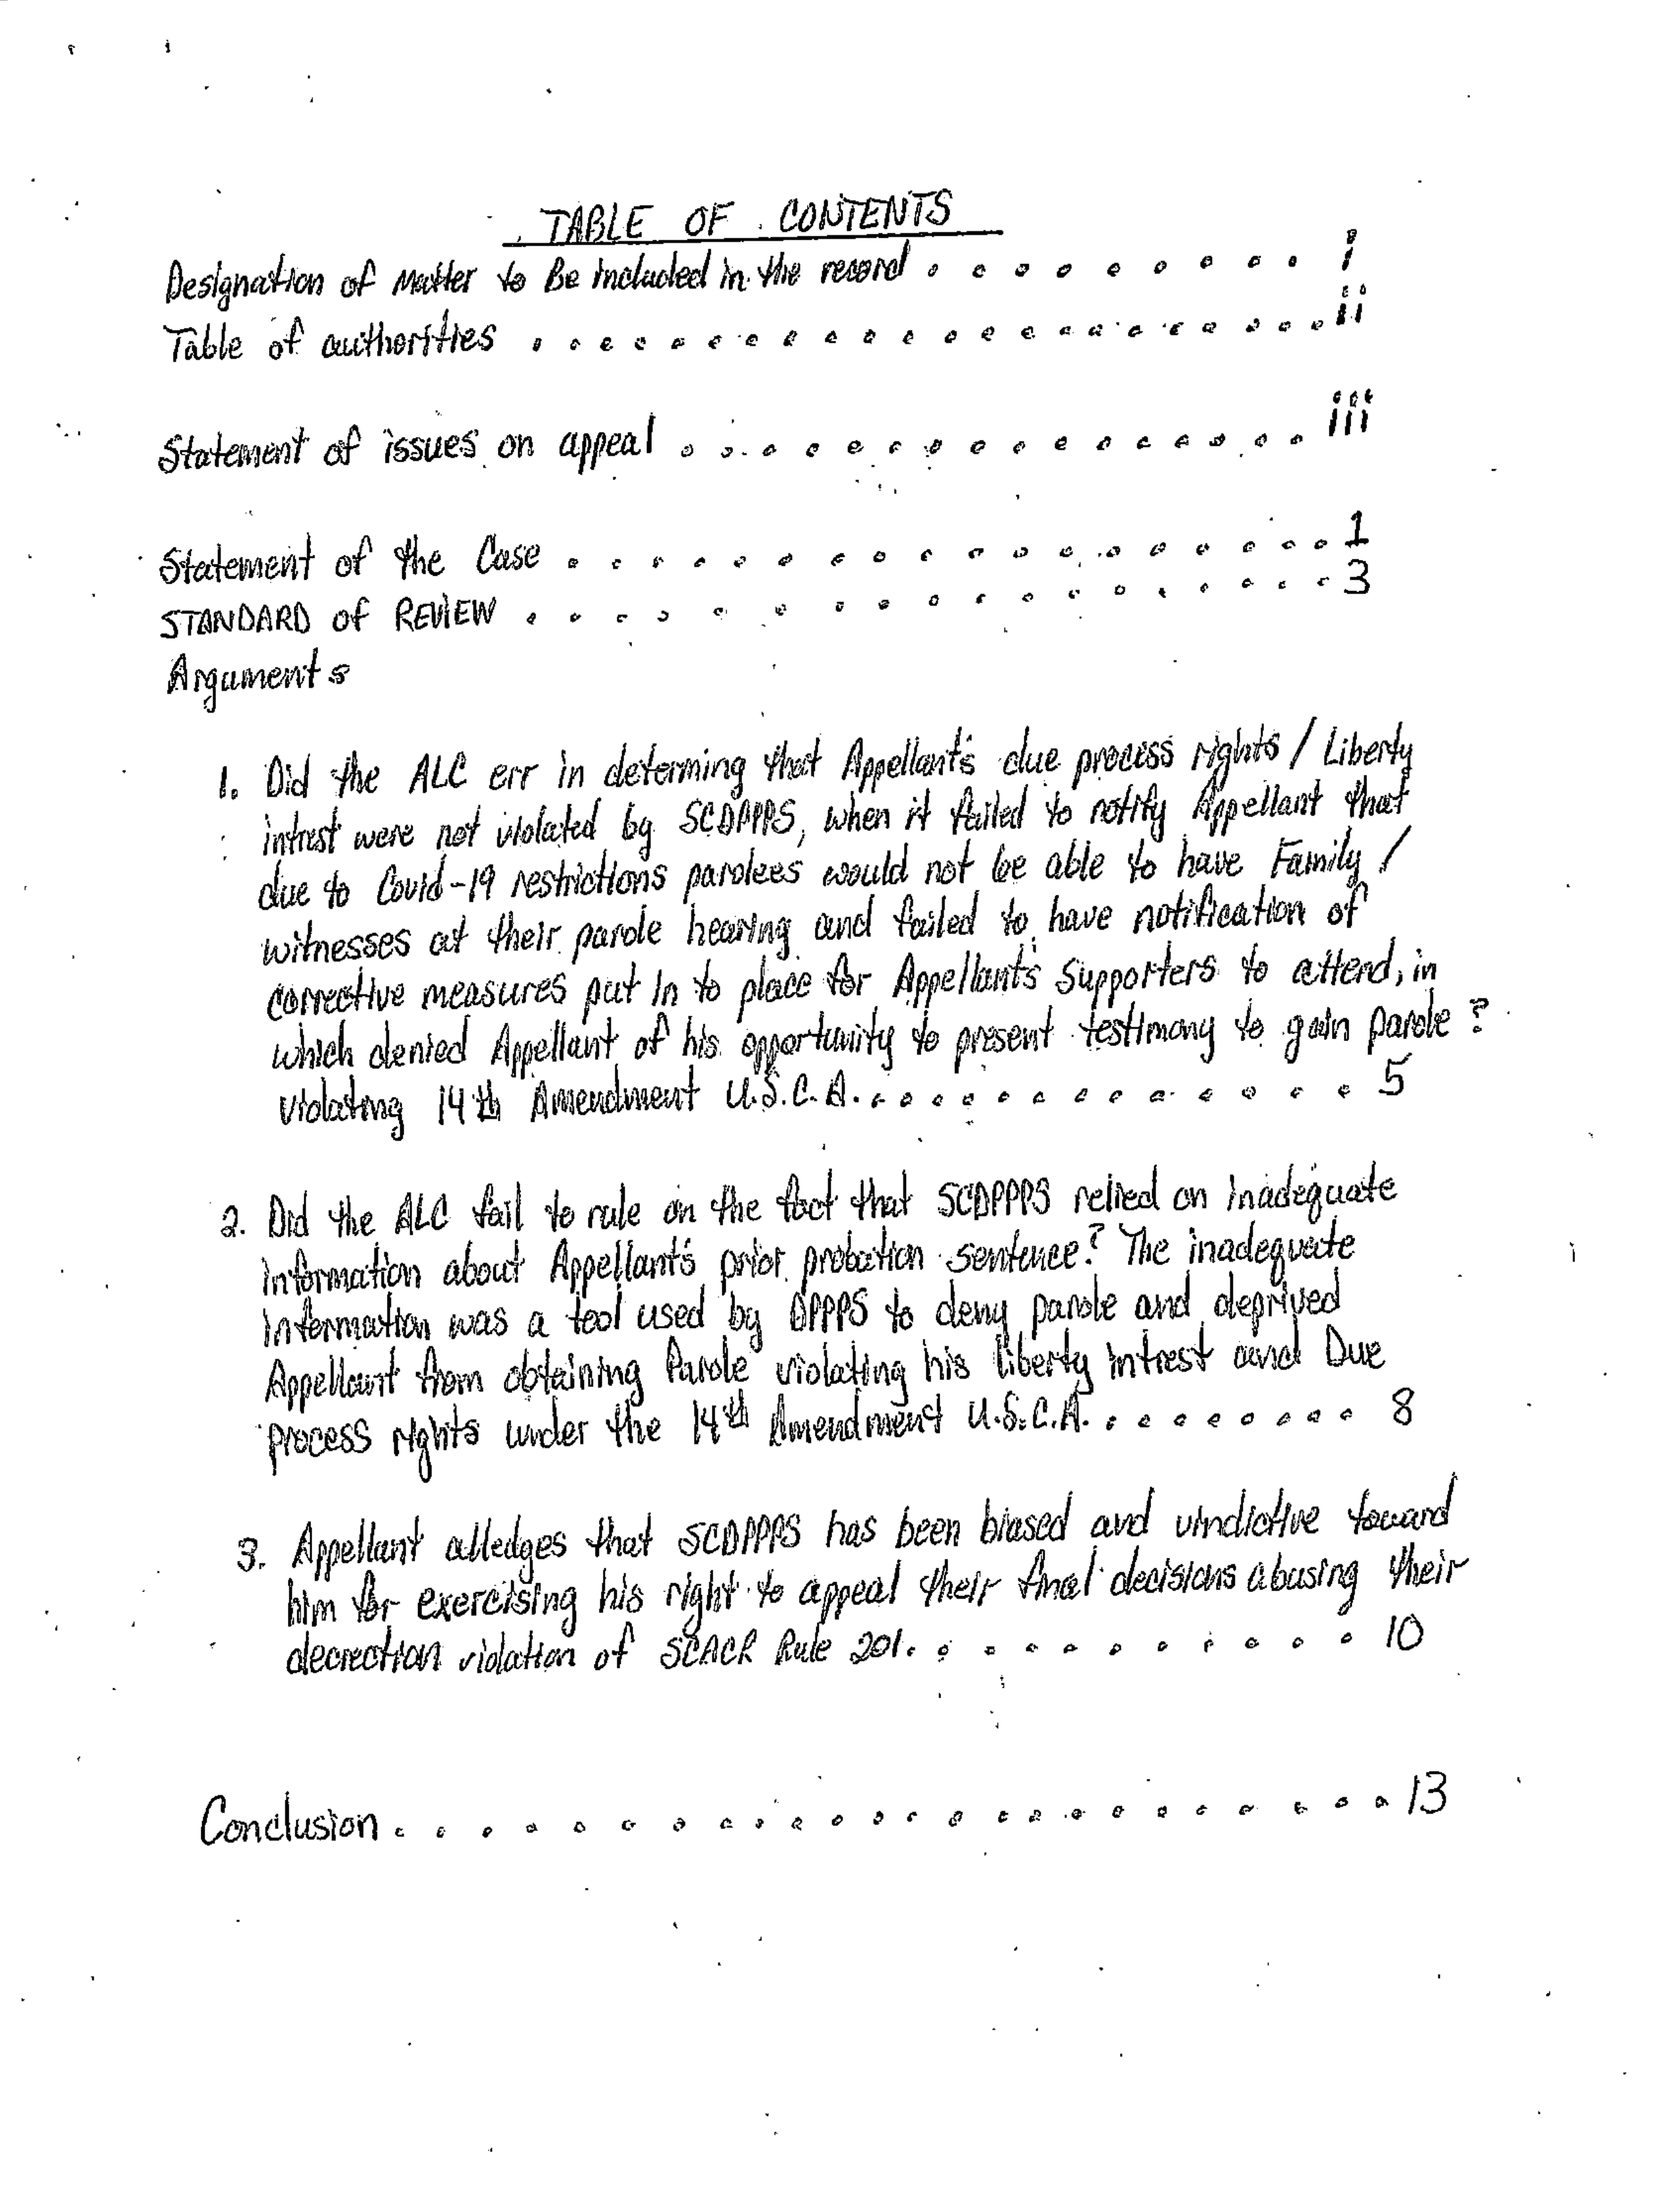 TABLE OF CONTENTS
Designation of Matter to Be included in the record . . . . . . . . . i
Table of authorities . . . . . . . . . . . . . . . . . . . . . ii
Statement of issues on appeal . . . . . . . . . . . . . . . iii
Statement of the Case . . . . . . . . . . . . . . . . . . 1
STANDARD of REVIEW . . . . . . . . . . . . . . . . . . 3
Arguments
1. Did the ALC err in determing that Appellant's due process rights / Liberty
intrest were not violated by SCDPPPS, when it failed to notify Appellant that
due to Covid-19 restrictions parolees would not be able to have Family /
witnesses at their parole hearing and failed to have notification of
corrective measures put In to place for Appellant's Supporters to attend, in
which denied Appellant of his opportunity to present testimony to gain parole?
violating 14th Amendment U.S.C.A. . . . . . . . . . . . . 5
2. Did the ALC fail to rule on the fact that SCDPPPS relied on inadequate
information about Appellant's prior probation sentence? The inadequate
information was a tool used by DPPPS to deny parole and deprived
Appellant from obtaining Parole violating his liberty intrest and Due
process rights under the 14th Amendment U.S.C.A. . . . . . . . . 8
3. Appellant alledges that SCDPPPS has been biased and vindictive toward
him for exercising his right to appeal their final decisions abusing their
decrection violation of SCACR Rule 201. . . . . . . . . . . 10
Conclusion . . . . . . . . . . . . . . . . . . . . . . . . 13